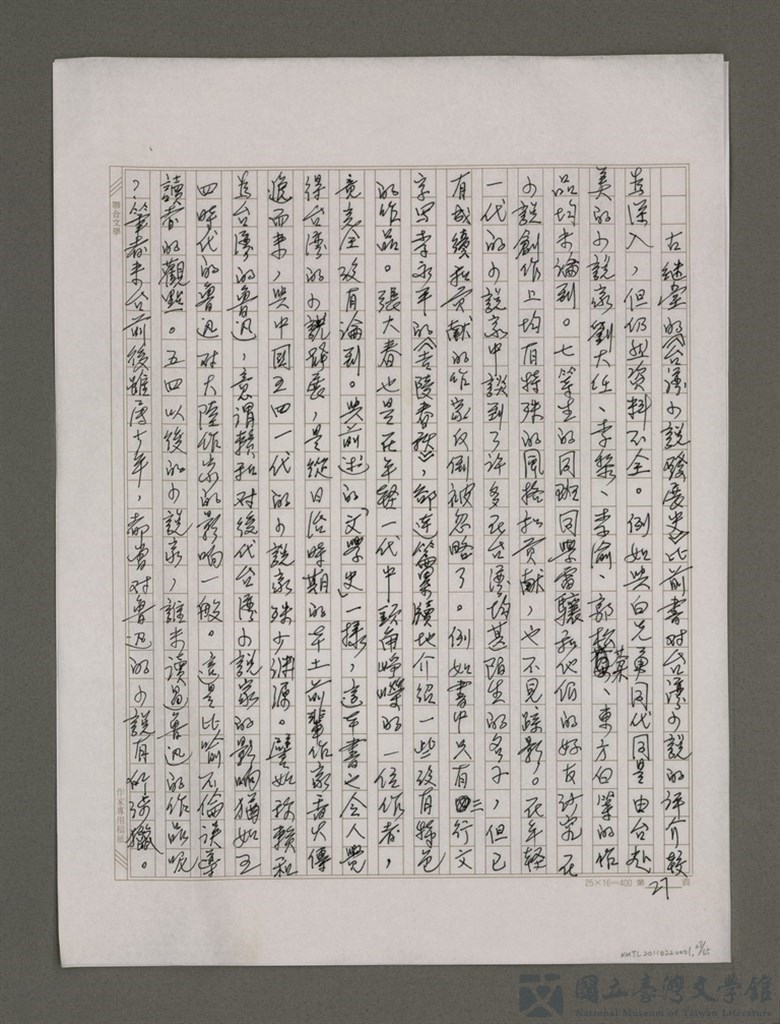 古繼堂的《台湾小說發展史》比前書对台湾小說的評介較
為深入，但仍然資料不全。例如與白先勇同代同是由台赴
美的小說家劉大任、李黎、李渝、郭松棻、東方白等的作
品均未論到。七等生的同班同學雷驤和他们的好友沙究在
小說創作上均有特殊的風格和貢献，也不見踪影。在年輕
一代的小說家中談到了許多在台湾均甚陌生的名字，但已
有成績和貢献的作家反倒被忽略了。例如書中只有三行文
字写李永平的《吉陵春秋》，卻連篇累牘地介紹一些没有特色
的作品。張大春也是在年輕一代中頭角崢嶸的一位作者，
竟完全没有論到。與前述的「文學史」一樣，這本書也令人覺
得台湾的小說發展，是從日治時期的本土前輩作家香火傳
遞而来，與中國五四一代的小說家殊少淵源。譬如称賴和
為台湾的魯迅，意謂賴和对後代台湾小說家的影响猶如五
四時代的魯迅对大陸作家的影响一般。這是比喻不倫誤導
讀者的觀點。五四以後的小說家，誰未讀過魯迅的作品呢
？筆者来台前後雖隔七年，都曾对魯迅的小說有所涉獵。
聯合文學
作家專用稿紙
25×16=400 第27頁
國立臺灣文學館
National Museum of Taiwan Literature